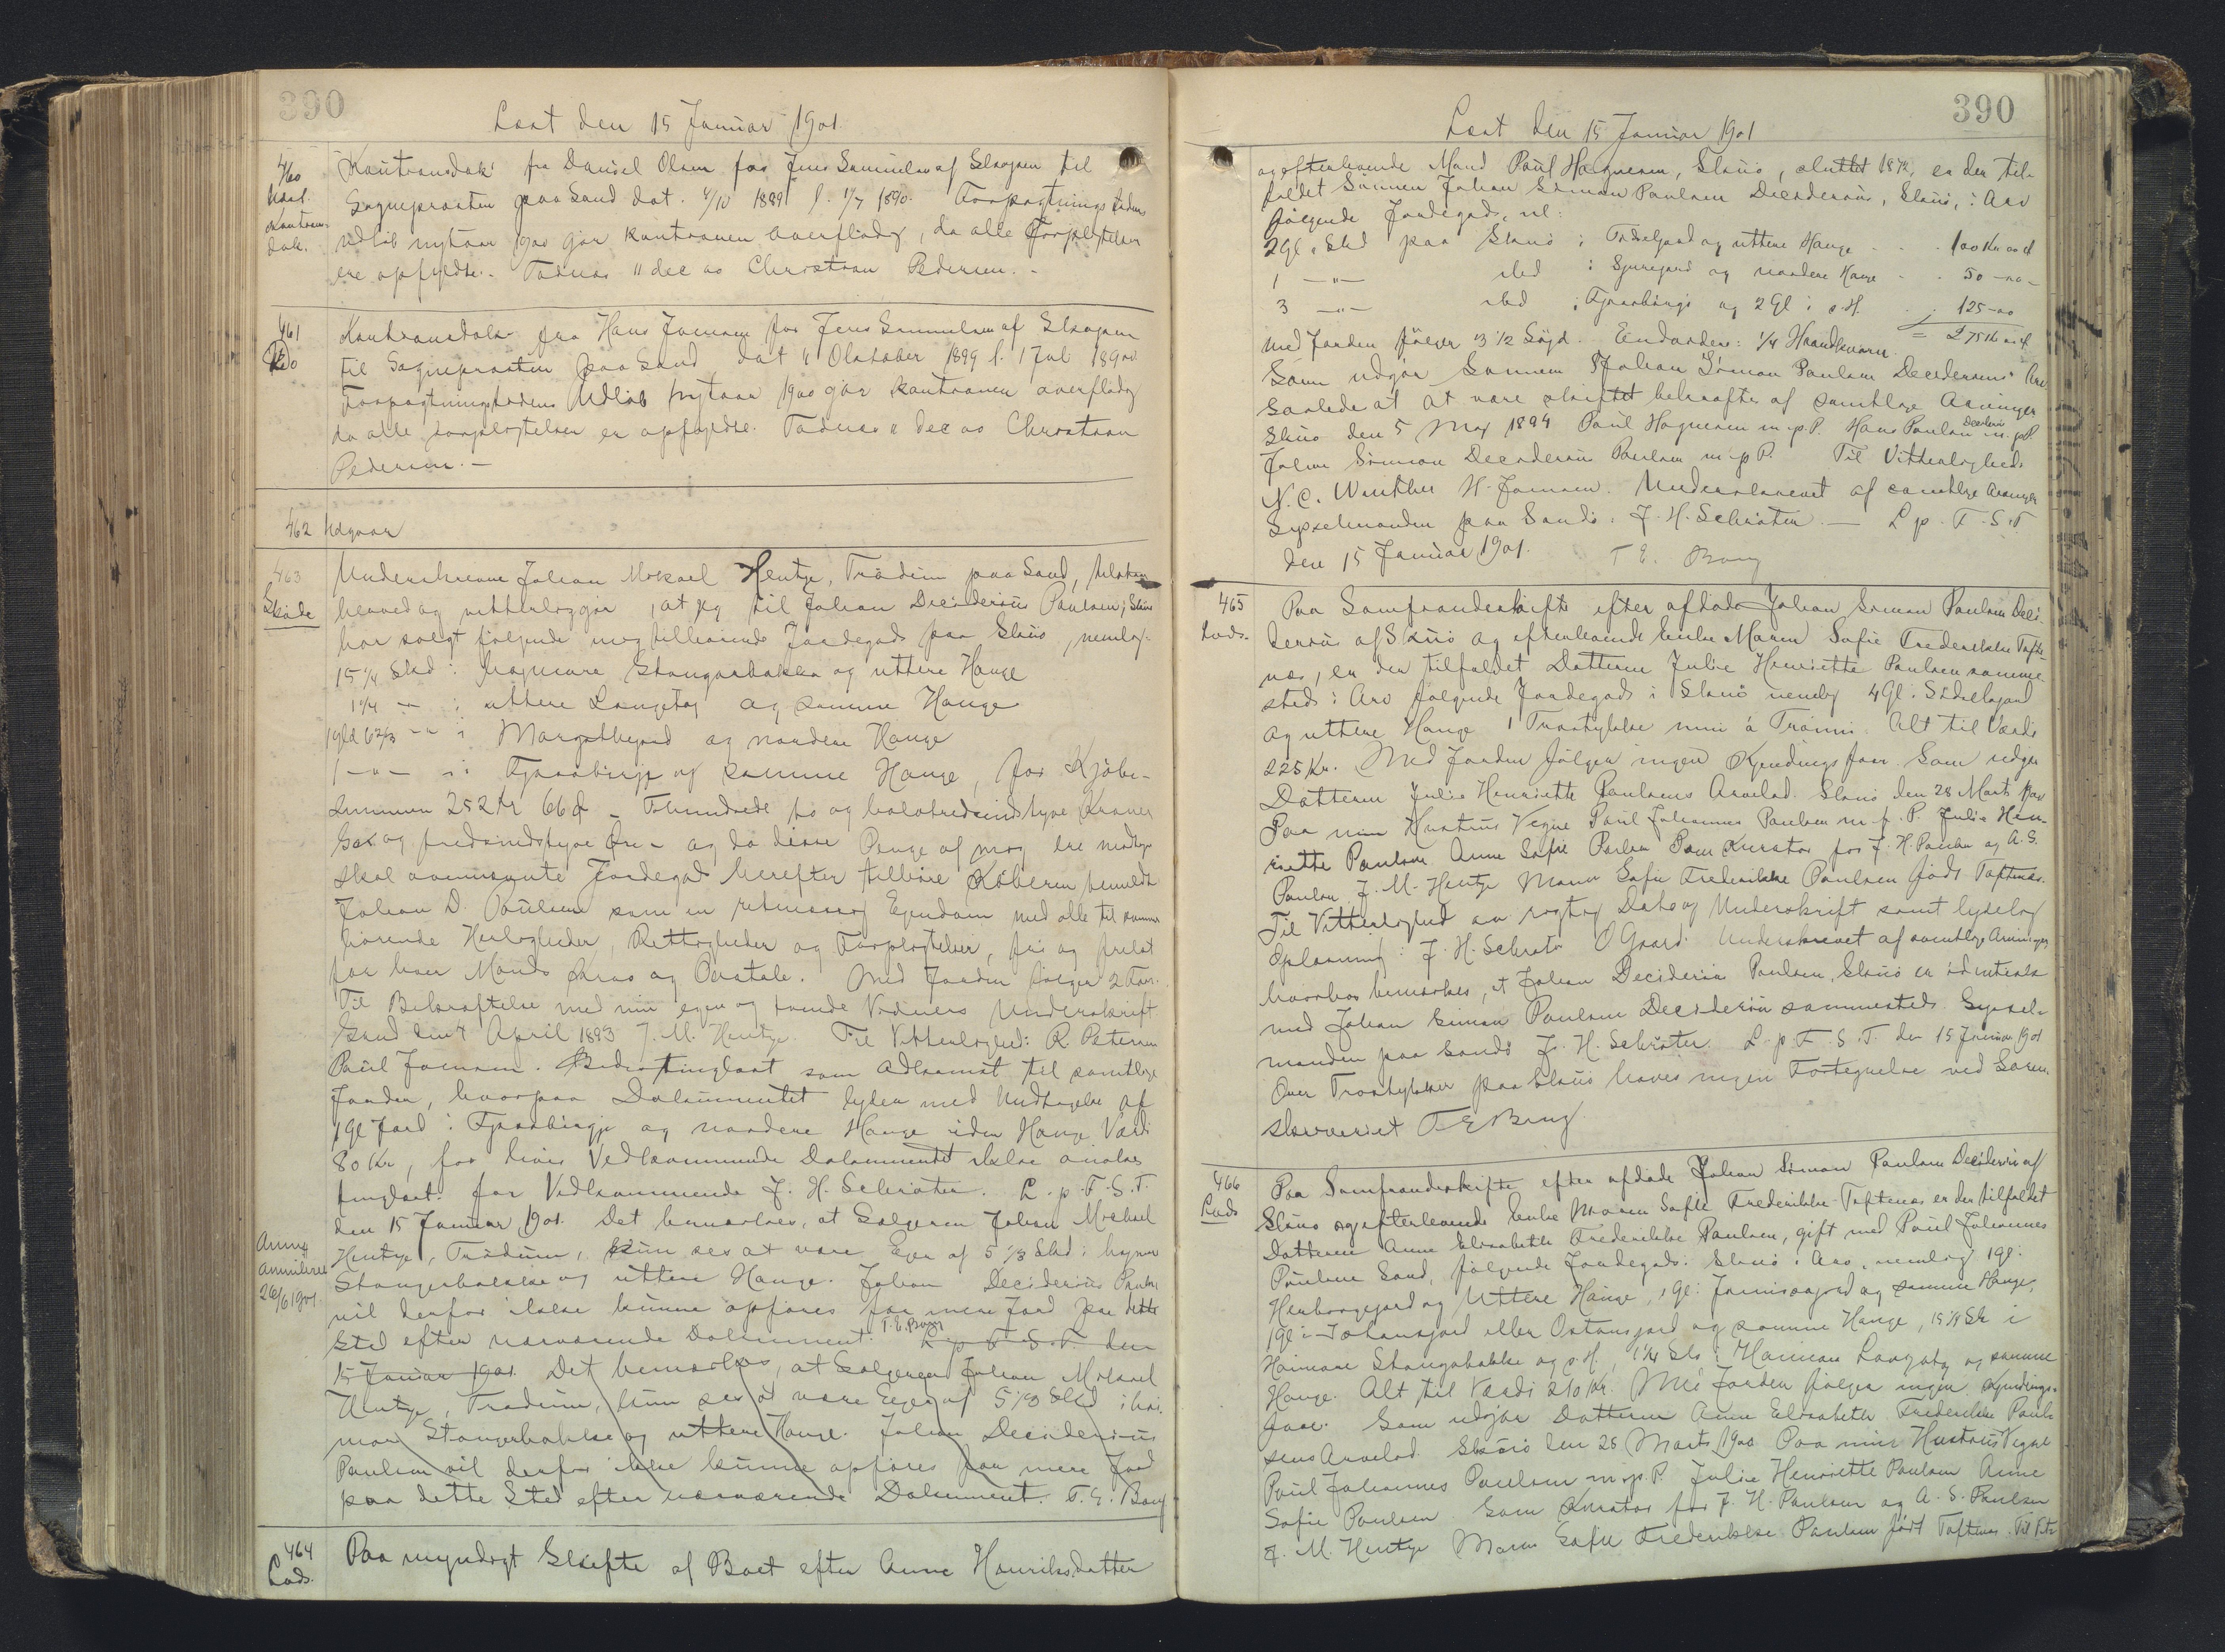 390
Læst den 15 Januar 1901.
460
Kautionsdok. fra Daniel Olsen for Jens Samuelsen af Skopen til
Sognepræsten paa Sand dat. 4/10 1889 l. 1/7 1890. Forpagtningstidens
Kautions-
dok.
udløb nytaar 1900 gør kautionen overflødig, da alle Forpligtelser
ere opfyldte. Todnæs 11 dec 00 Christian Pedersen. -
461
Kautionsdok. fra Hans Joensen for Jens Samuelsen af Skopen
Do
til Sognepræsten paa Sand dat 4 Oktober 1899 l. 1 Juli 1890.
Forpagtningstidens Udløb nytaar 1900 gør kautionen overflødig
da alle forpligtelser er opfyldte. Todnæs 11 dec 00 Christian
Pedersen. -
462 Udgaar
463
Underskrevne Johan Mikael Hentze, Trødum paa Sand, tilstaar
Skøde
herved og vitterliggør, at jeg til Johan Deciderius Paulsen, Skuø
har solgt følgende mig tilhørende Jordegods paa Skuø, nemlig
15 1/4 Skd i Stangarbakka og uttere Hauge
1 1/4 - i uttere Langetog og samme Hauge
1 gld 6 2/3 - " i Margethegjord og nordere Hauge
1 - " - " i og samme Hauge, for Kjøbe-
summen 252 Kr 66 Ø - Tohundrede to og halvtredsindstyve Kroner
Sex og tredsindstyve Øre - og da disse Penge af mig ere modtagne
skal ovennævnte Jordegods herefter tilhøre Køberen bemeldte
Johan D. Paulsen som en retmæssig Ejendom med alle til samme
hørende Herligheder, Rettigheder og Forpligtelser, fri og frelst
for hver Mands Krav og Paatale. Med Jorden følger 2 Faar.
Til Bekræftelse med min egen og tvende Vidners Underskrift
Sand den 4 April 1893 J. M. Hentze. Til Vitterlighed: R. Petersen
Paul Joensen. Bedes tinglæst som Adkomst til samtlige
Jorder, hvorpaa Dokumentet lyder med Undtagelse af
1 Gl Jord i og nordere Hauge uden Hauge Værdi
80 Kr, for hvis Vedkommende Dokumentet ikke ønskes
tinglæst. for Vedkommende J. H. Schrøter. L. p. F. S. T.
den 15 Januar 1901. Det bemærkes, at Sælgeren Johan Michael
Anm
annulleret
26/6 1901.
Hentze, Trødum, kun ses at være Ejer af 5 1/3 Skd i
Stangerbakke og uttere Hauge. Johan Deciderius Paulsen
vil derfor ikke kunne opføres for mere Jord paa dette
Sted efter nærværende Dokument. T. E. Bang L. p. F. S. T. den
15 Januar 1901. Det bemærkes, at Sælgeren Johan Mikael
Hentze, Trødum, kun ses at være Ejer af 5 1/3 Skd i
Stangerbakke og uttere Hauge. Johan Deciderius
Paulsen vil derfor ikke kunne opføres for mere Jord
paa dette Sted efter nærværende Dokument. T. E. Bang
464
Lods.
Paa myndigt Skifte af Boet efter Anne Henriksdatter
390
Læst den 15 Januar 1901
og efterlevende Mand Paul Høgnesen, Skuø, sluttet er der til-
faldet Sønnen Johan Simon Paulsen Deciderius, Skuø, i Arv
følgende Jordegods, nl:
2 Gl. Skd paa Skuø i og uttere Hauge - - . 100 Kr 00 Ø
1 - " - sted i og nordere Hauge - . 50 - 00 -
3 - " - sted i og 2 Gl i s. H. . . 125 - 00
= 275 Kr 00 Ø
Med Jorden følger 13 1/2 Søyd. Eendvidere: 1/4 Haandkværn.
Som udgør Sønnen Johan Simon Paulsen Deciderius Arv
Saaledes at være skiftet bekræftes af samtlige Arvinger
Skuø den 5 Maj 1894 Paul Høgnesen m. p. P. Hans Paulsen m. p. P.
Johan Simon Deciderius Paulsen m. p. P. Til Vitterlighed:
N. C. Winther H. Joensen. Underskrevet af samtlige Arvinger
Sysselmanden paa Sandø. J. H. Schrøter. - L. p. F. S. T.
den 15 Januar 1901. T. E. Bang
465
Lods.
Paa Samfrændeskifte efter afdøde Johan Simon Paulsen Deci-
derius af Skuø og efterlevende Enke Maren Sofie Frederikke Tofte-
næs, er der tilfaldet Datteren Julie Henriette Paulsen samme-
steds i Arv følgende Jordegods i Skuø nemlig 4 Gl. i
og uttere Hauge 1 Træstykke Alt til Værdi
225 Kr. Med Jorden følger ingen Kjendingsfaar. Som udgør
Datteren Julie Henriette Paulsens Arvelod. Skuø den 28 Marts 1900
Paa min Hustrus Vegne Paul Johannes Paulsen m. p. P. Julie Hen-
riette Paulsen Anne Sofie Paulsen Som Kurator for J. H. Paulsen og A. S.
Paulsen J. M. Hentze Maren Sofie Frederikke Paulsen født Toftenæs.
Til Vitterlighed om rigtig Dato og Underskrift samt tydelig
Oplæsning: J. H. Schrøter O Gaard. Underskrevet af samtlige Arvinger
hvorhos bemærkes, at Johan Deciderius Paulsen, Skuø er identisk
med Johan Simon Paulsen Deciderius sammesteds. Syssel-
manden paa Sandø J. H. Schrøter. L. p. F. S. T. den 15 Januar 1901
Over Træstykker paa Skuø haves ingen Fortegnelse ved Soren-
skriveriet T. E. Bang
466
Lods
Paa Samfrændeskifte efter afdøde Johan Simon Paulsen Deciderius af
Skuø og efterlevende Enke Maren Sofie Frederikke Toftenæs er der tilfaldet
Datteren Anne Elisabeth Frederikke Paulsen, gift med Paul Johannes
Paulsen Sand, følgende Jordegods i Skuø i Arv, nemlig 1 gl i
og Uttere Hauge, 1 Gl i og samme Hauge,
1 gl i eller og samme Hauge, 15 1/4 Sk i
Stangabakke og s. H., 1 1/4 Sk i og samme
Hauge. Alt til Værdi 210 Kr. Med Jorden følger ingen Kjendings-
faar. Som udgør Datteren Anne Elisabeth Frederikke Paul-
sens Arvelod. Skuø den 28 Marts 1900 Paa min Hustrus Vegne
Paul Johannes Paulsen m. p. P. Julie Henriette Paulsen Anne
Sofie Paulsen Som Kurator for J. H. Paulsen og A. S. Paulsen
J. M. Hentze Maren Sofie Frederikke Paulsen født Toftenæs. Til Vit